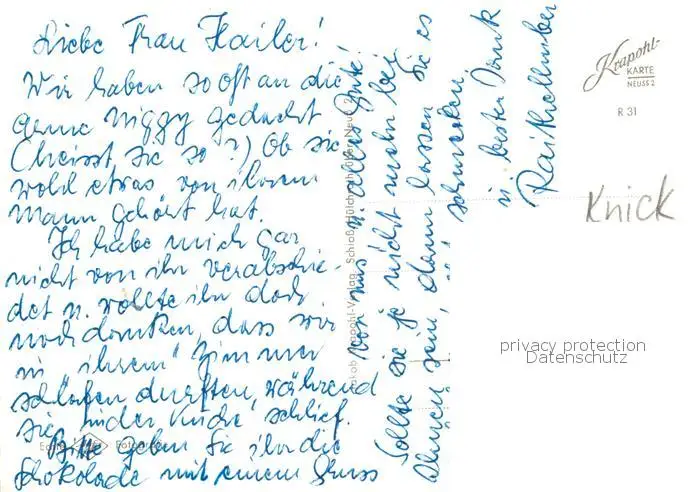 Liebe Frau Hailer!
Wir haben so oft an die
gerne Niggy gedacht
(heisst sie so?) Ob sie
wohl etwas von ihrem
Mann gehört hat.
Ich habe mich gar
nicht von ihr verabschie-
det u. wollte ihr doch
noch danken, dass wir
in "ihrem" Zimmer
schlafen durften, während
sie in der Küche schlief.
Bitte geben Sie ihr die
Schokolade mit einem Gruss
von uns u. alles Gute!
Sollte sie je nicht mehr bei
Ihnen sein, dann lassen Sie es
schmecken.
u. besten Dank
Krapohl-
KARTE
NEUSS 2
R 31
Knick
privacy protection
Datenschutz
Krapohl-Verlag Schloß Hülchrath über Neuss 2